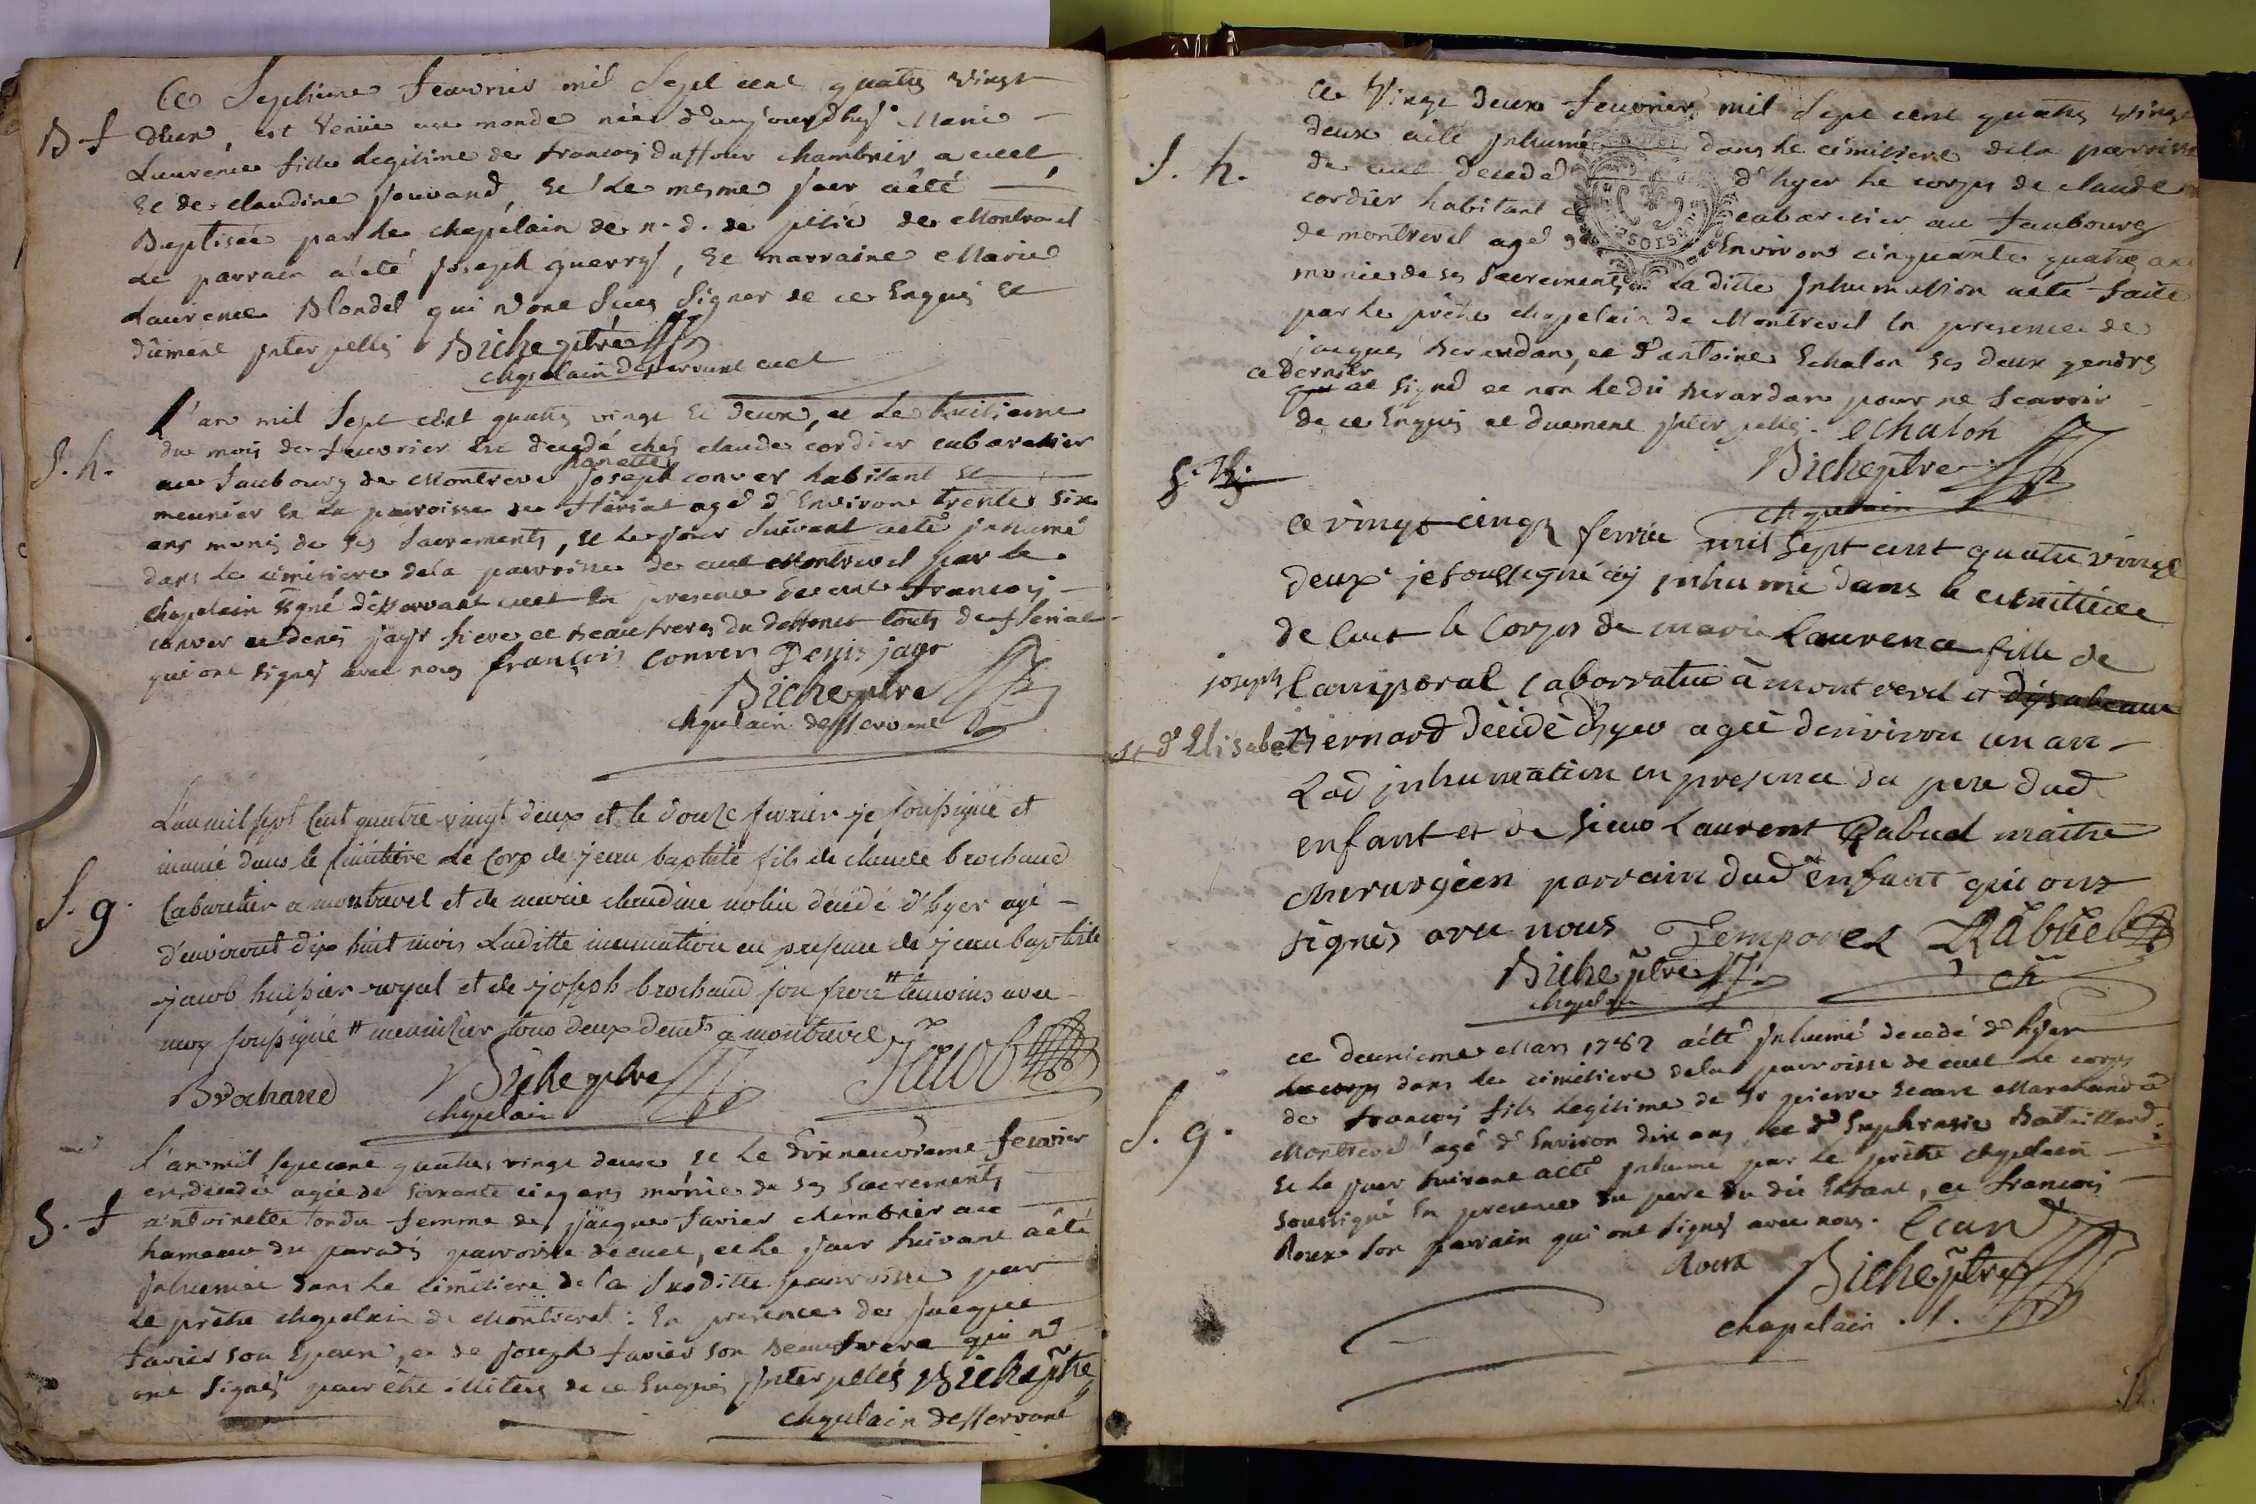 Ce Septieme Feavrier mil Sept cent quatre vingt
B. f
deux, est venüe au monde née d'aujourdhuy Marie
Laurence fille Legitime de francois duffour chambrier a cuet
et de claudine jouvand, et le mesme jour aété
Baptisée par le chapélain de n. d. de pitié de Montrevel
Le parrain aété joseph guerry, et marraine Marie
Laurence Blondel qui n'ont sceu signer de ce Enquis et
düement jnterpellés Biche ptre
chapelain desservant cuet
L'an mil Sept cent quatre vingt et deux, et le huitieme
S. h.
du mois de feuvrier est decedé chés claude cordier cabaretier
au faubourg de Montrevel joseph convers habitant et
meunier en la parroisse de agé d'Environt trente six
ans munis de ses sacrements, et le jour suivant aété jnhumé
dans le cimitiere dela parroisse de cuet Montrevel par le
chapelain signé desservant cuet en presence de francois
conver et denis jayr frere et beaufreres du deffunt touts de
qui ont signés avec nous françois convers Denis jayr
Biche ptre
chapelain desservant
L'an mil sept cent quatre vingt deux et le douze fevrier je soussigné et
inumé dans le cimitière le corp de jean baptiste fils de claude brochand
S. g.
Cabaretier a montrevel et de marie claudine décédé d'hyer agé
d'environt dix huit mois Laditte inumation en presence de jean baptiste
jacob huissier royal et de joseph brochand son frere # temoins avec
moy soussigné # menuisier tous deux demts a montrevel
Brochand Biche ptre Jacob
chapelain
L'an mil sept cent quatre vingt deux et le dixneuvieme feuvrier
est decedée agée de soixante cinq ans münie de ses sacrements
S. f
antoinette tondu femme de jacque favier chambrier au
hameau du paradis parroisse de cuet, et le jour suivant aété
jnhumée dans le cimitiere de la susditte parroisse par
Le prêtre chapelain de Montrevel: En presence de jacque
favier son Epoux, et de joseph favier son beaufrere qui n'
ont signés pour être illiterés de ce Enquis jnterpellés Biche ptre
chapelain desservant
Ce vingt deux feuvrier mil sept cent quatre vingt
deux aété jnhumé dans le cimitiere dela parroisse
S. h.
de cuet decedé d'hyer le corps de claude
cordier habitant cabaretier au faubourg
de montrevel agé d'Environs cinquante quatre ans
munies de ses sacrements La ditte jnhumation aété faite
par le prêtre chapelain de Montrevel en presence de
jacques berardan, et d'antoine Echalon ses deux gendres
ce dernier
qui at signé et non ledit berardan pour ne scavoir
de ce Enquis et duement jnterpellé. echalon
Biche ptre
chapelain
ce vingt cinq fevrier mil sept cent quatre vingt
deux je soussigné ay inhumé dans le cimitiere
de cuet le corps de marie Laurence fille de
joseph
Lamporal laborratier à montrevel et dysabeau
et d'Elisabet
Bernard décédé d'hyer agée d'environ un an
Lad inhumation en presence du pere dud
enfant et de sieur Laurent Rabuel maitre
chirurgien parrain dud enfant qui ont
signés avec nous Temporel Rabuel
Biche ptre ch
chapelain
ce deuxieme Mars 1782 aété jnhumé decedé d'hyer
le corps dans le cimitiere dela parroisse de cuet le corps
S. g.
de francois fils Legitime de Sr pierre Marchand a
Montrevel agé d'Environ dix ans et de Euphrasie Bataillard;
et le jour suivant aété jnhume par le prêtre chapelain
soussigné En presence du pere du dit Enfant, et francois
Roux son parrain qui ont signés avec nous.
Roux Biche ptre
chapelain